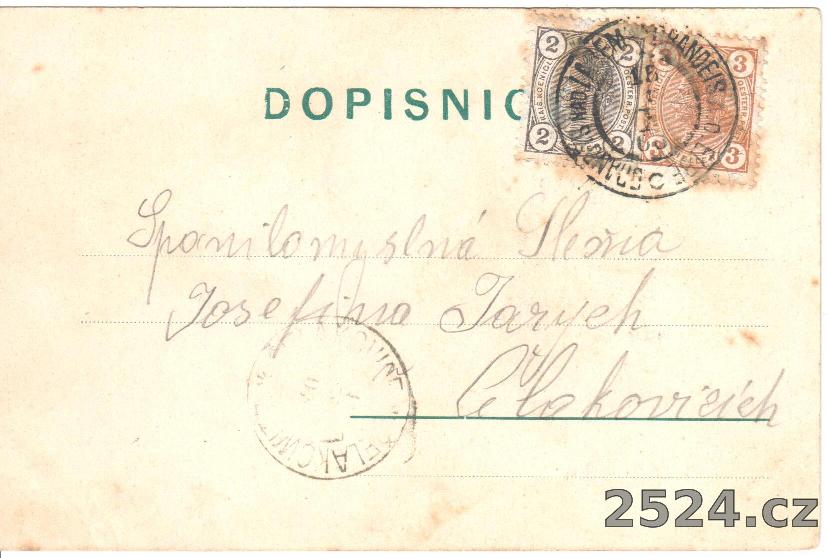 DOPISNIC
2 2 2 2
KAIS. KOENIGL. OESTERR. POST
3 3 3
BRANDEIS A. D. ELBE
Spanilomyslná Slečna
Josefina Tarych
Čelakovicích
2524.cz